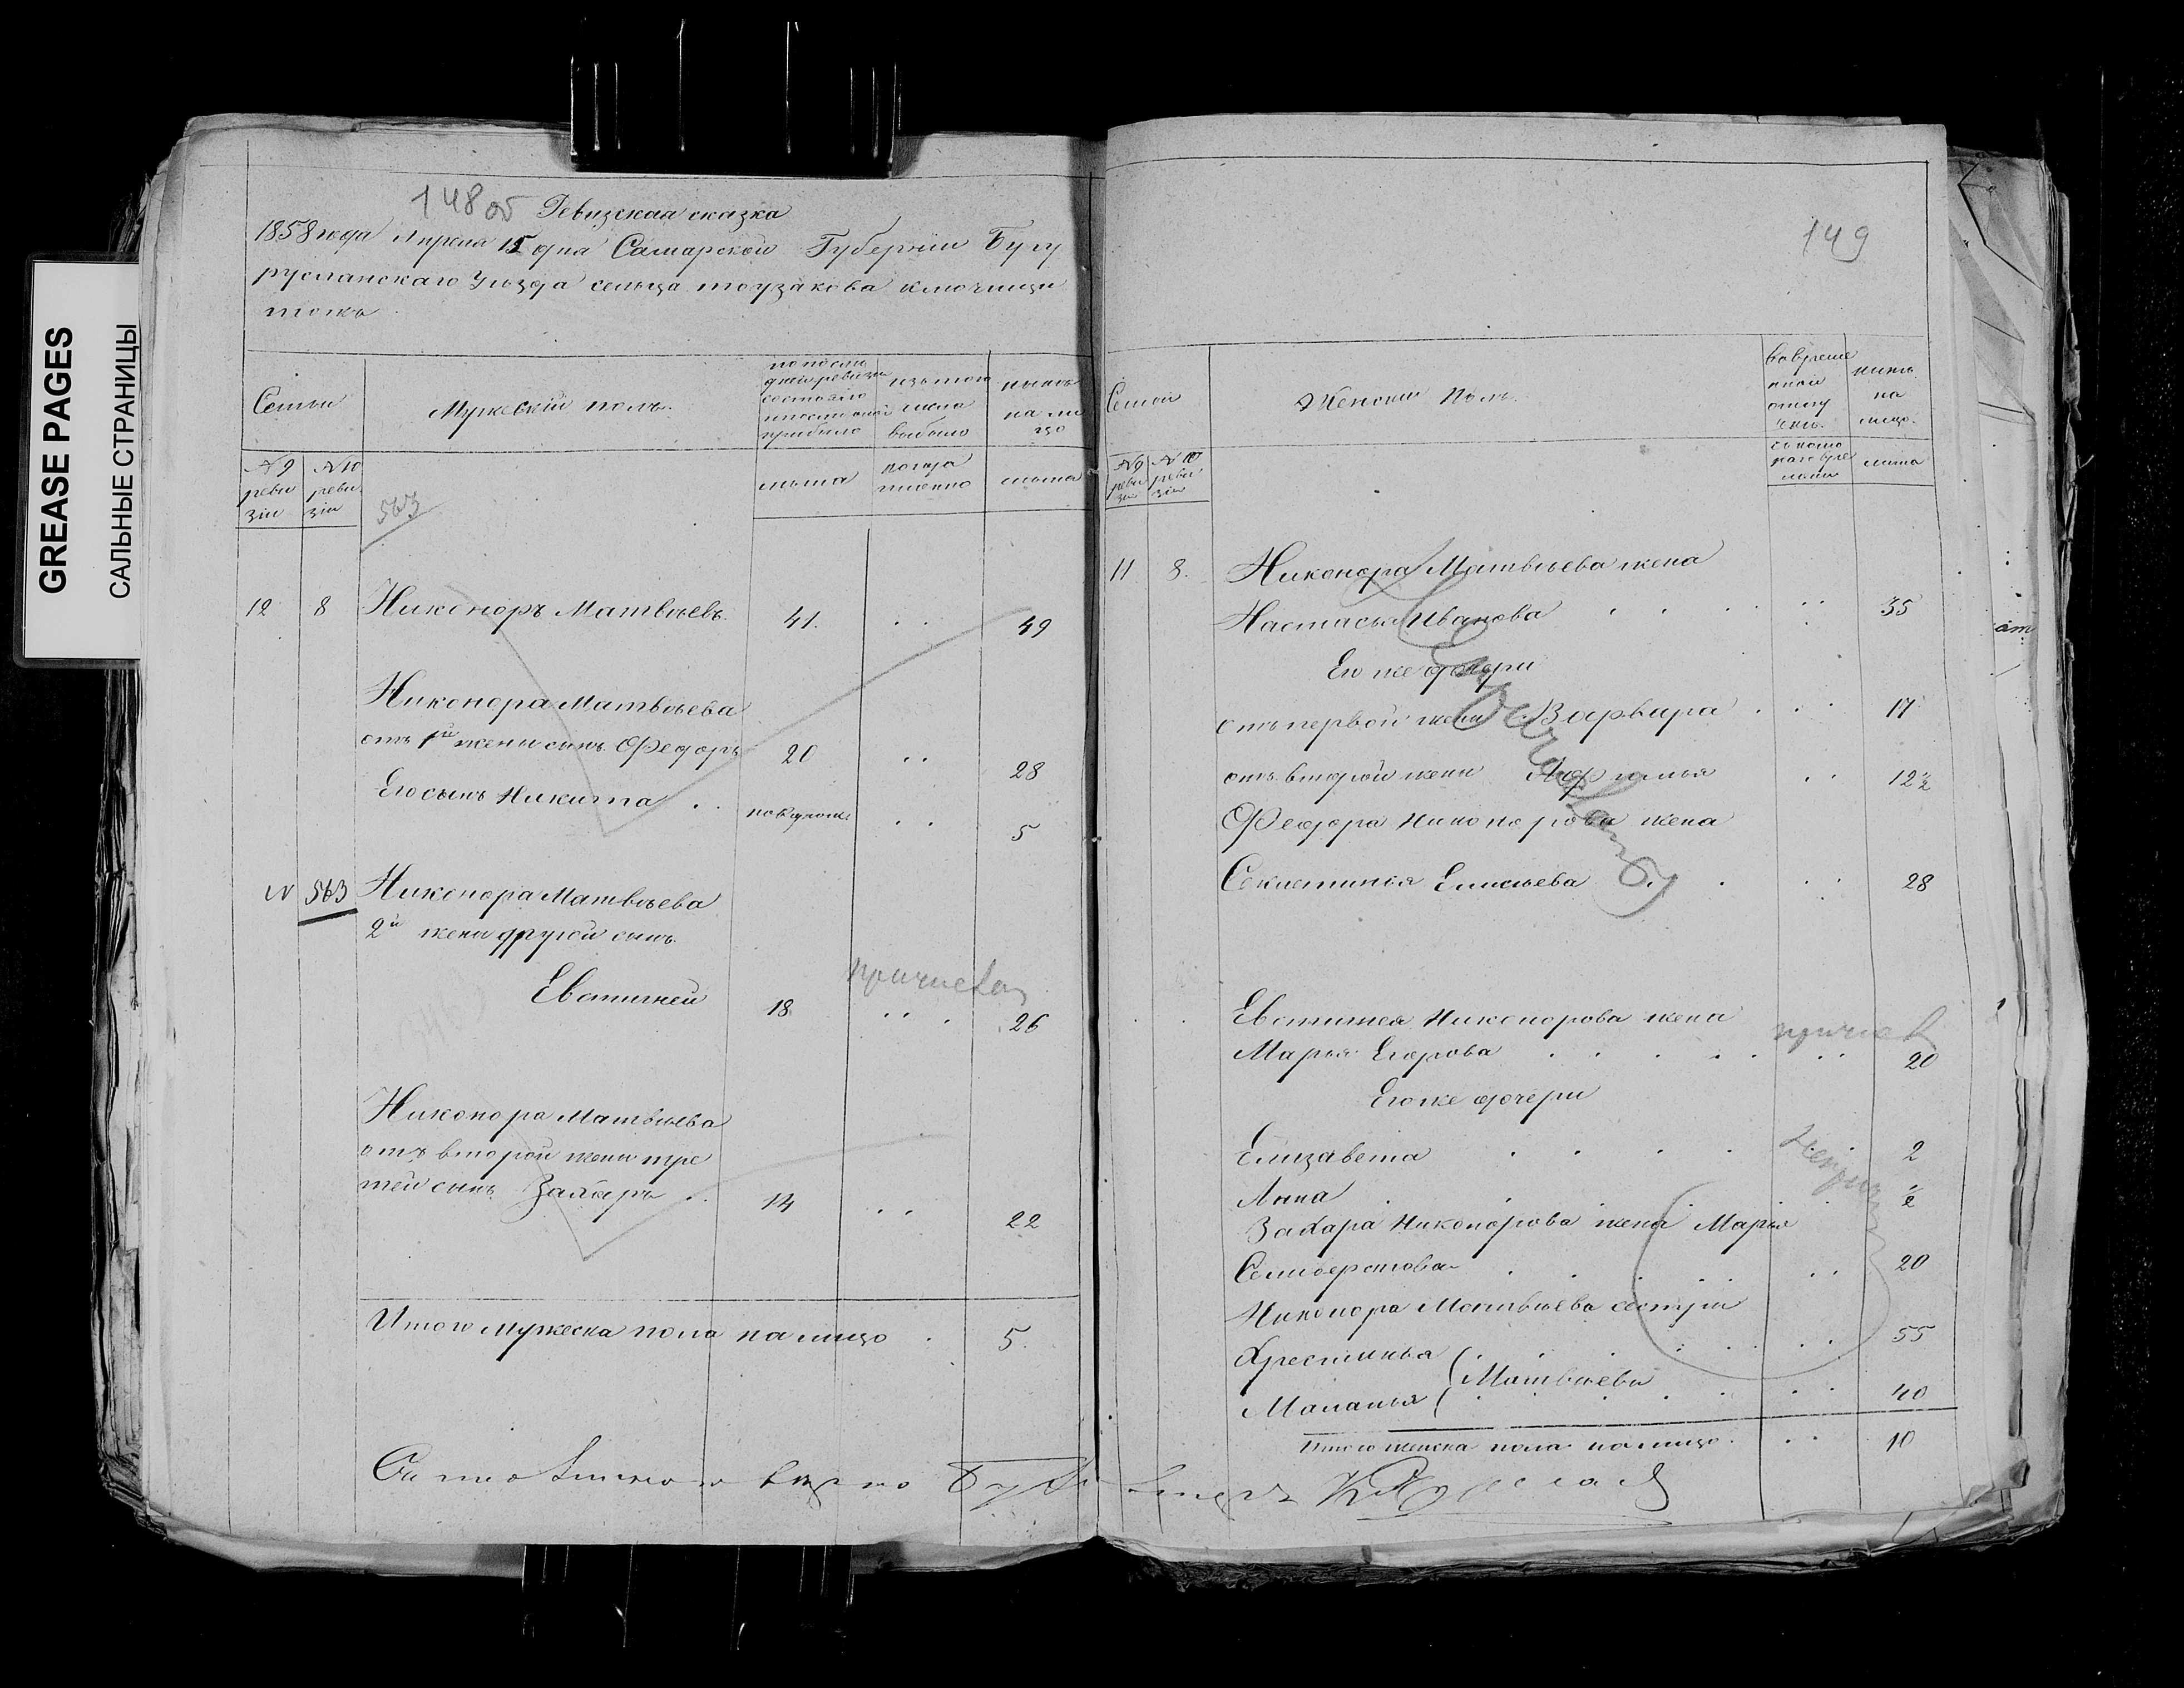 GREASE PAGES
САЛЬНЫЕ СТРАНИЦЫ
148 об
Ревизская сказка
1858 года Апреля 15 дня Самарской Губернии Бугу
русланскаго Уѣзда сельца тоузакова ключищи
тожъ
Семьи
Мужескій полъ.
по послѣ
дней ревизи
состояло
и послѣ оной
прибыло
изъ того
числа
выбыло
нынѣ
на ли
цо
№ 9
реви
зіи
№ 10
реви
зіи
563
лѣта
когда
имѣнно
лѣта
12 8 Никоноръ Матвѣевъ. 41. 49
Никонора Матвѣева
отъ 1й жены сынъ Федоръ 20 28
Его сынъ Никита 5
№ 563 Никонора Матвѣева
2й жены другой сынъ
причислен
Евстигней 18 26
Никонора Матвѣева
отъ второй жены тре
тей сынъ Захаръ 14 22
Итого мужеска пола на лицо 5.
149
Семьи
Женский Полъ.
вовреме
нной
отлу
чкѣ.
нынѣ
на
лицо.
№ 9
реви
зіи
№ 10
реви
зіи
съ кото
раго вре
мени
лѣта
11 8. Никонора Матвѣева жена
Настасья Иванова 35
Его же дочери
отъ первой жены Варвара 17
отъ второй жены 12½
Федора Никонорова жена
Секлетинья Елисѣева 28
Евстигнея Никонорова жена
причислен
Марья Егорова 20
Его же дочери
Елизавета 2
Анна ½
Захара Никонорова жена Марья
Селиверстова 20
Никонора Матвѣева сестры
Хрестинья 55
Матвѣевы
Маланья 40
Итого женска пола на лицо 10